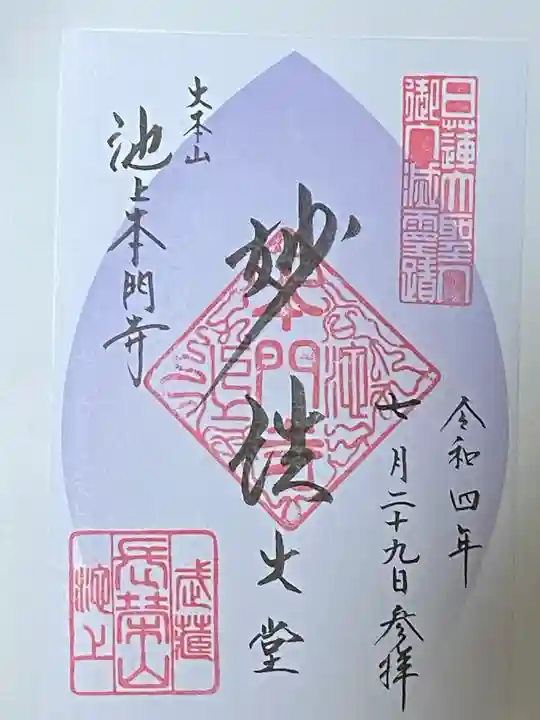 日蓮大聖人
御入滅霊蹟
令和四年
七月二十九日参拝
妙法
大堂
大本山
池上本門寺
本門寺
武蔵
長榮山
池上